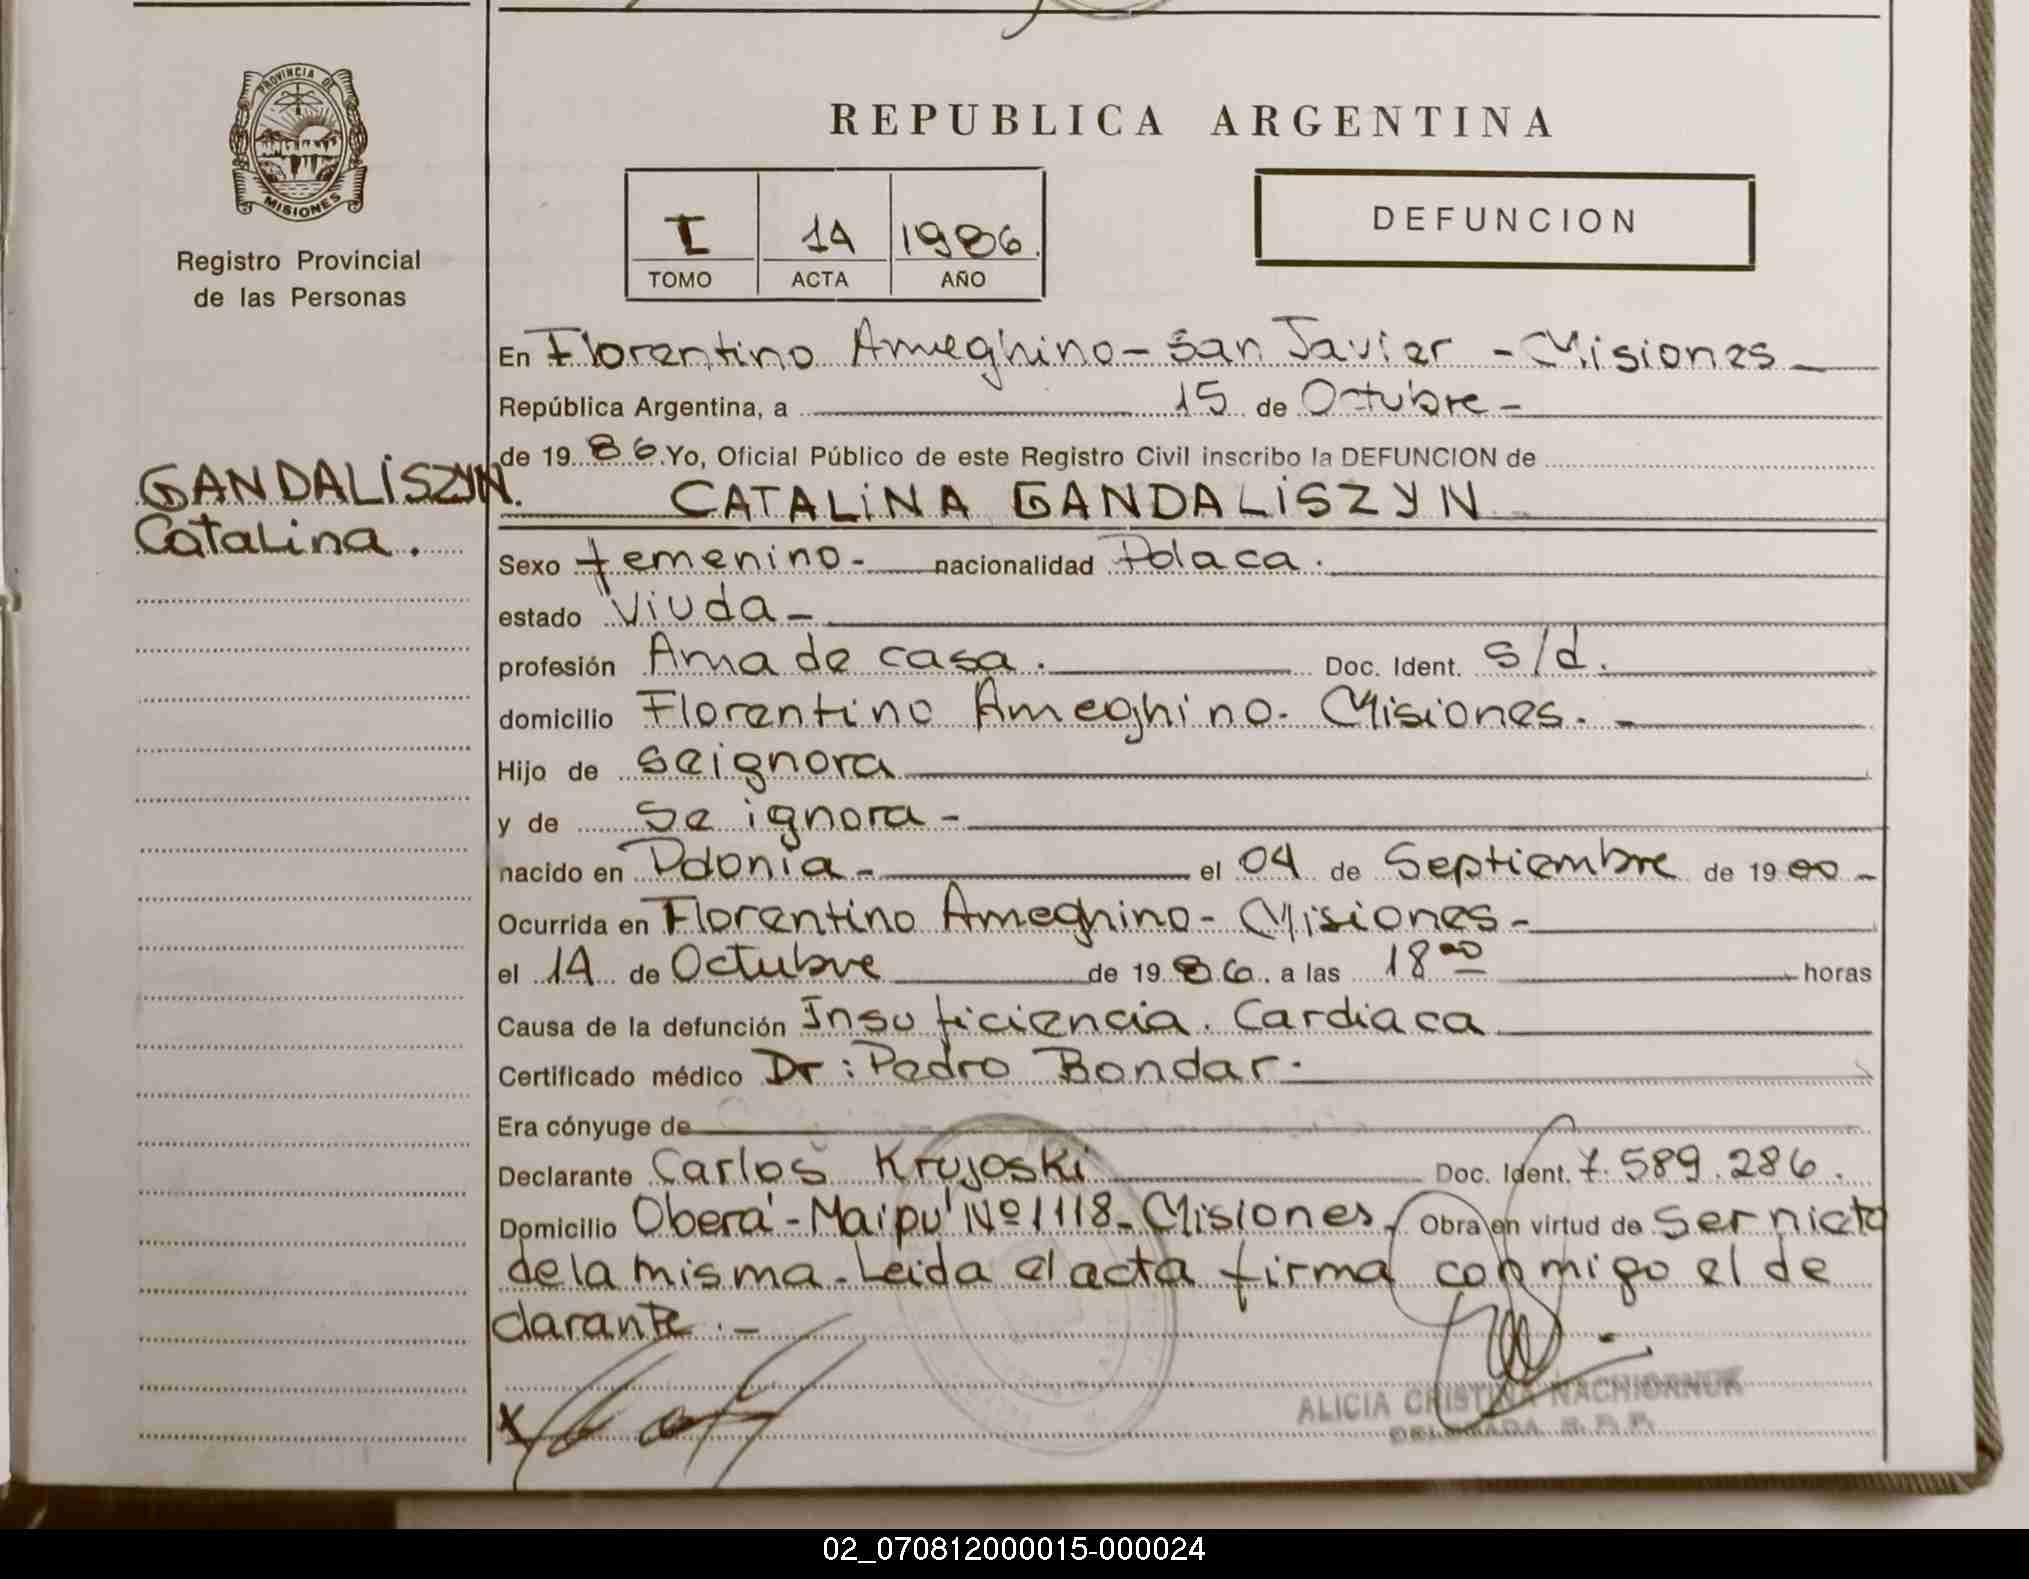 PROVINCIA DE
MISIONES
Registro Provincial
de las Personas
GANDALISZYN.
Catalina.
REPUBLICA ARGENTINA
I 14 1986.
TOMO ACTA AÑO
DEFUNCION
En Florentino Ameghino - San Javier - Misiones
República Argentina, a 15 de Octubre -
de 19 86 Yo, Oficial Público de este Registro Civil inscribo la DEFUNCION de
CATALINA GANDALISZYN
Sexo femenino - nacionalidad Polaca.
estado Viuda -
profesión Ama de casa. Doc. Ident. s/d.
domicilio Florentino Ameghino - Misiones. -
Hijo de seignora
y de se ignora -
nacido en Polonia - el 04 de Septiembre de 19 00 -
Ocurrida en Florentino Ameghino - Misiones -
el 14 de Octubre de 19 86. a las 18 00 horas
Causa de la defunción Insuficiencia. Cardiaca
Certificado médico Dr: Pedro Bondar.
Era cónyuge de
Declarante Carlos Krujoski Doc. Ident. 7.589.286.
Domicilio Oberá - Maipú Nº 1118 - Misiones. Obra en virtud de ser nieto
de la misma. Leida el acta firma conmigo el de
clarante. -
X
ALICIA CRISTINA NACHIORNUK
DELEGADA R.P.P.
02_070812000015-000024